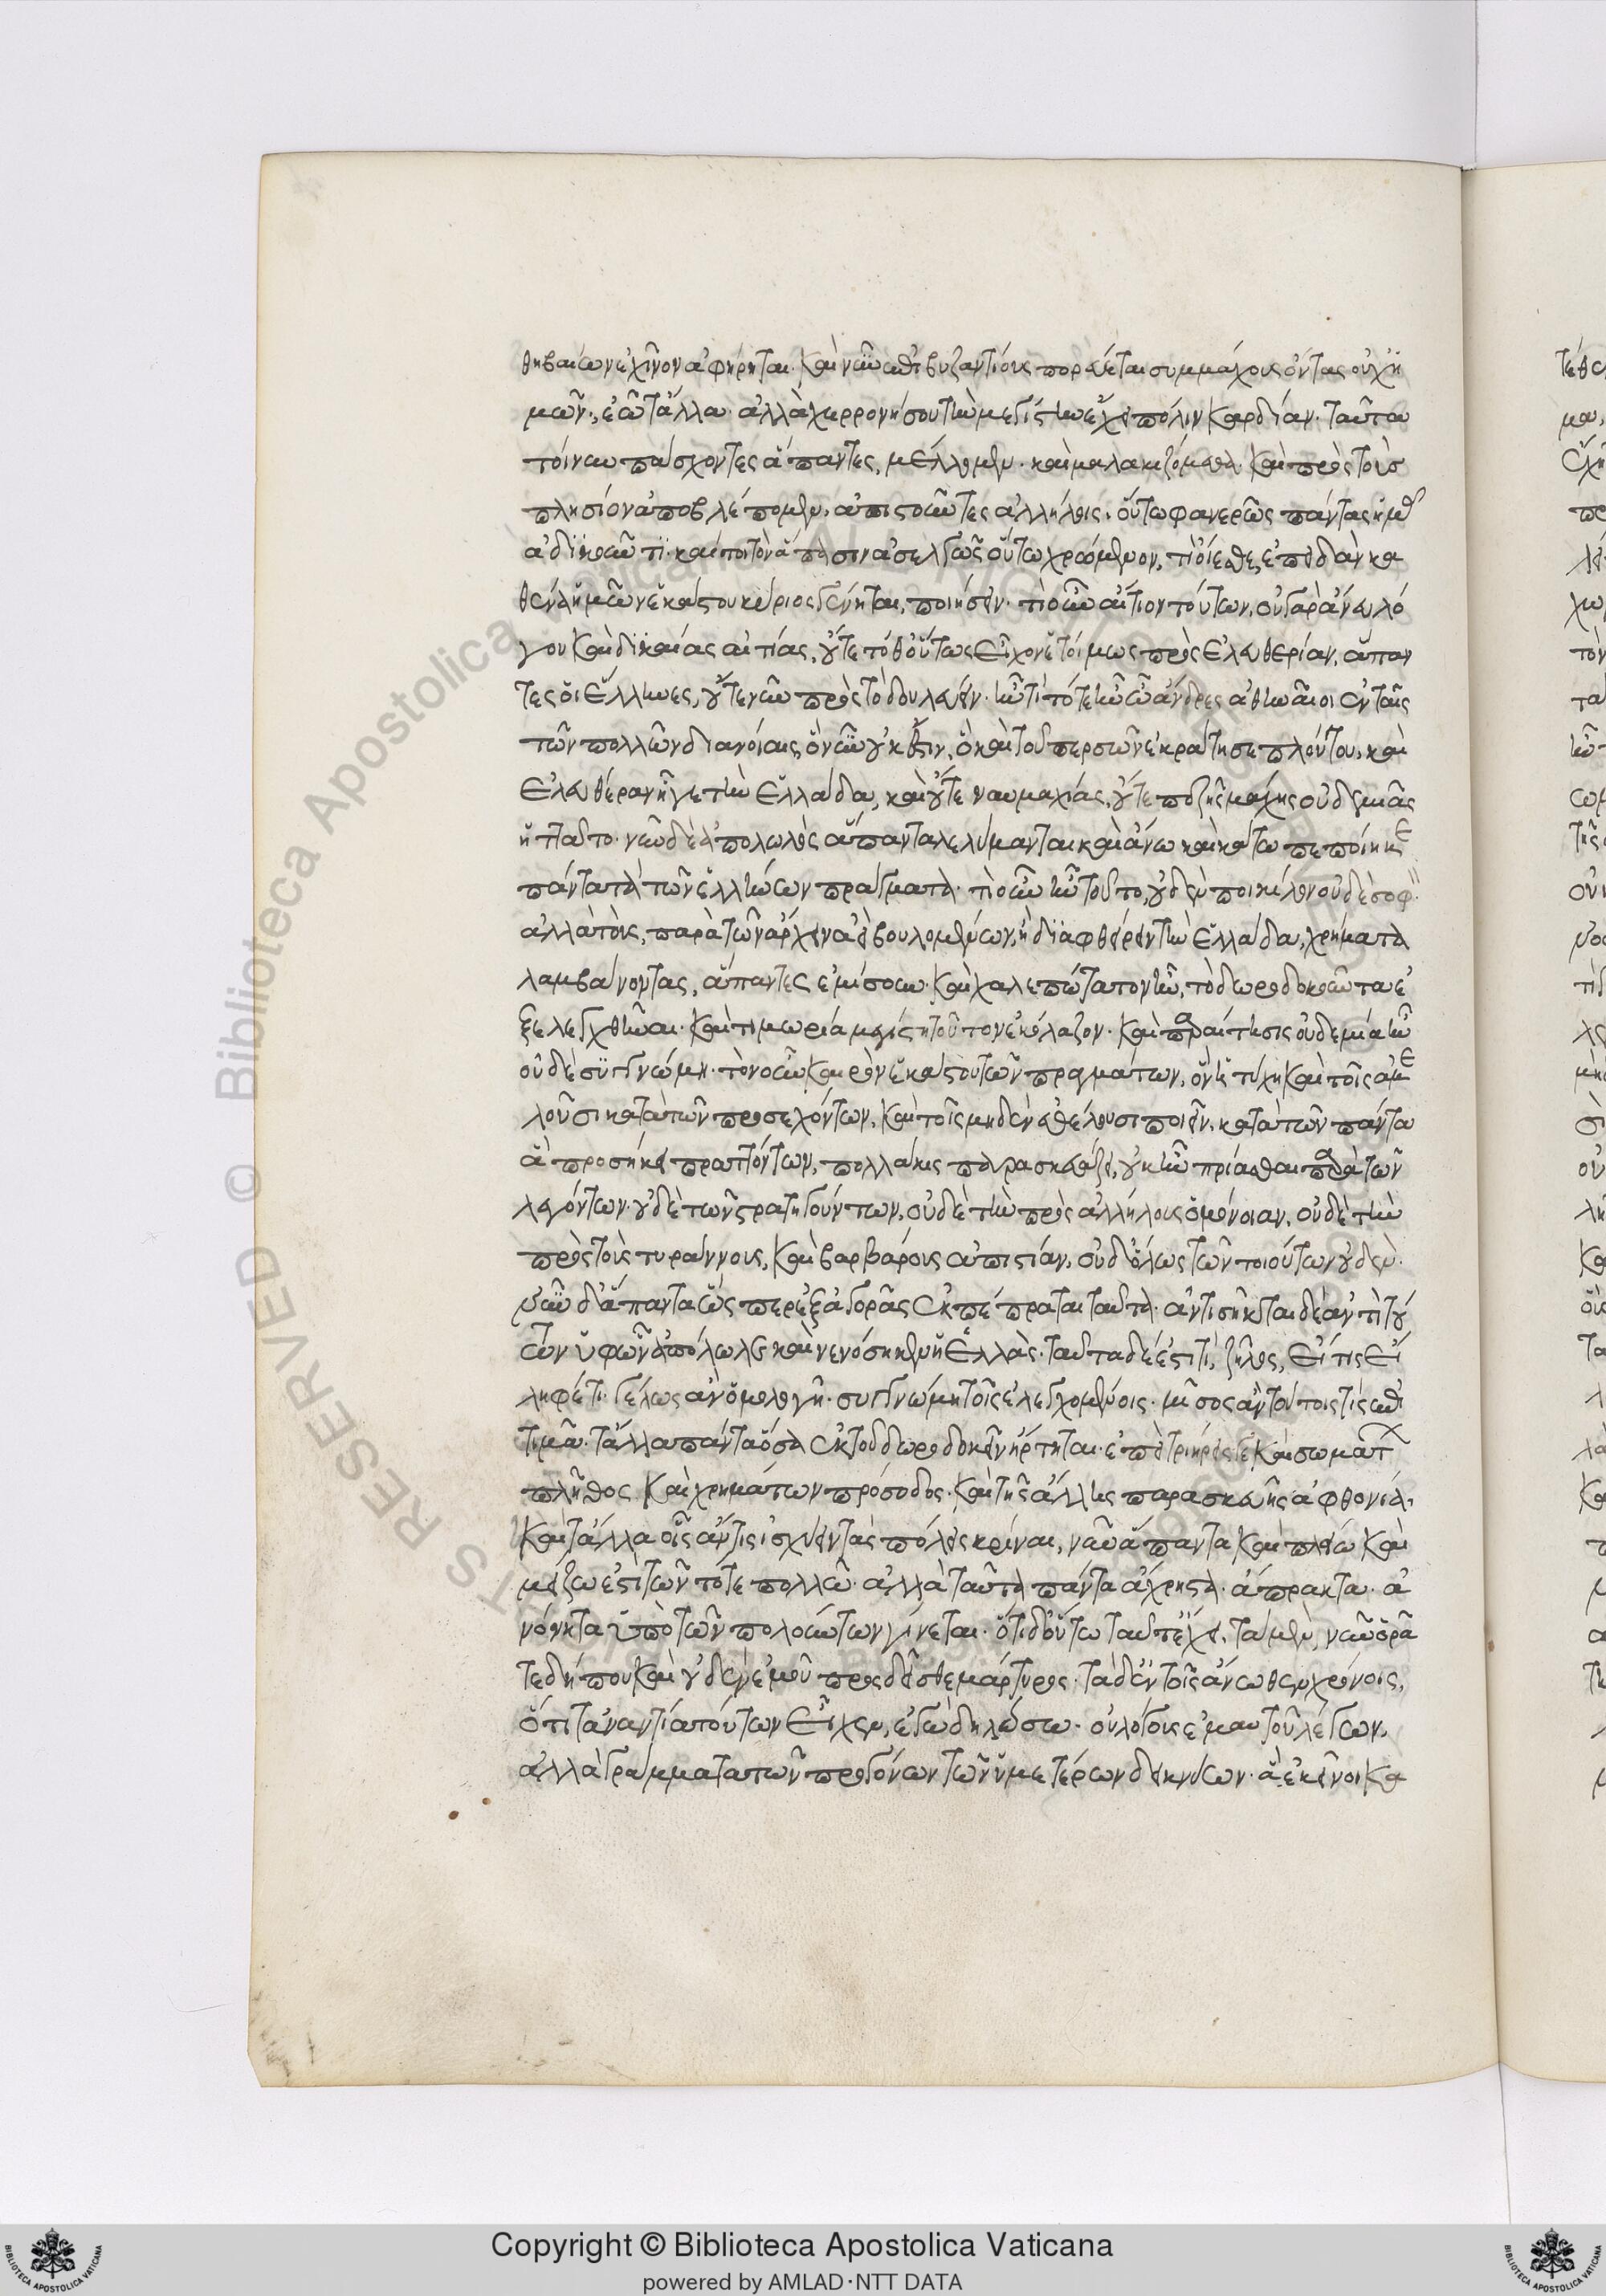 θηβαίων ἐχῖνον ἀφήρηται· καὶ νῦν ἐπὶ βυζαντίους πορεύεται συμμάχους ὄντας οὐχ ἡ
μῶν·, ἐῶ τἄλλα· ἀλλὰ χερρονήσου τὴν μεγίστην ἔχει πόλιν καρδίαν· ταῦτα
τοίνυν πάσχοντες ἅπαντες, μέλλομεν· καὶ μαλακιζόμεθα· καὶ πρὸς τοὺς
πλησίον ἀποβλέπομεν, ἀπιστοῦντες ἀλλήλοις· οὕτω φανερῶς πάντας ἡμᾶς
ἀδικοῦντι· καίτοι τὸν ἅπασιν ἀσελγῶς οὕτω χρώμενον, τί οἴεσθε, ἐπειδὰν κα
θέν᾽ ἡμῶν ἑκάστου κύριος γένηται, ποιήσειν· τί οὖν αἴτιον τούτων, οὐ γὰρ ἄνευ λό
γου καὶ δικαίας αἰτίας, οὔτε τόθ᾽ οὕτως εἶχον ἑτοίμως πρὸς ἐλευθερίαν, ἅπαν
τες οἱ ἕλληνες, οὔτε νῦν πρὸς τὸ δουλεύειν· ἦν τί τότε ἦν ὦ ἄνδρες ἀθηναῖοι ἐν ταῖς
τῶν πολλῶν διανοίαις ὃ νῦν οὐκ ἔστιν, ὃ καὶ τοῦ περσῶν ἐκράτησε πλούτου, καὶ
ἐλευθέραν ἦγε τὴν ἑλλάδα, καὶ οὔτε ναυμαχίας, οὔτε πεζῆς μάχης οὐδεμιᾶς
ἡττᾶτο· νῦν δὲ ἀπολωλὸς ἅπαντα λελύμανται καὶ ἄνω καὶ κάτω πεποίηκε
πάντα τὰ τῶν ἑλλήνων πράγματα· τί οὖν ἦν τοῦτο, οὐδὲν ποικίλον οὐδὲ σοφ
ἀλλὰ τοὺς, παρὰ τῶν ἄρχειν ἀεὶ βουλομένων, ἢ διαφθείρειν τὴν ἑλλάδα, χρήματα
λαμβάνοντας, ἅπαντες ἐμίσουν· καὶ χαλεπώτατον ἦν, τὸ δωροδοκοῦντα ἐ
ξελεγχθῆναι· καὶ τιμωρία μεγίστῃ τοῦτον ἐκόλαζον· καὶ παραίτησις οὐδεμία ἦν
οὐδὲ συγγνώμη· τὸν οὖν καιρὸν ἑκάστου τῶν πραγμάτων, ὃν ἡ τύχη καὶ τοῖς ἀμε
λοῦσι κατὰ τῶν προσεχόντων, καὶ τοῖς μηδὲν ἐθέλουσι ποιεῖν, κατὰ τῶν πάντα
ἃ προσήκει πραττόντων, πολλάκις παρασκευάζει, οὐκ ἦν πρίασθαι παρὰ τῶν
λεγόντων οὐδὲ τῶν στρατηγούντων, οὐδὲ τὴν πρὸς ἀλλήλους ὁμόνοιαν, οὐδὲ τὴν
πρὸς τοὺς τυράννους, καὶ βαρβάρους ἀπιστίαν, οὐδ᾽ ὅλως τῶν τοιούτων οὐδέν·
νῦν δ᾽ ἅπαντα ὥσπερ ἐξ ἀγορᾶς ἐκπέπραται ταῦτα· ἀντισῆκται δὲ ἀντὶ τού
των ὑφ᾽ ὧν ἀπόλωλε καὶ νενόσηκεν ἡ ἑλλὰς· ταῦτα δέ ἐστι τί, ζῆλος, εἴ τις εἴ
ληφέ τι· γέλως ἂν ὁμολογῆ· συγγνώμη τοῖς ἐλεγχομένοις· μῖσος ἂν τούτοις τίς ἐπι
τιμᾶ· τἄλλα πάντα ὅσα ἐκ τοῦ δωροδοκεῖν ἤρτηται· ἐπεὶ τριήρεις γε καὶ σωμάτ
πλῆθος καὶ χρημάτων πρόσοδος· καὶ τῆς ἄλλης παρασκευῆς ἀφθονία·
καὶ τἄλλα οἷς ἄν τις ἰσχύειν τὰς πόλεις κρίναι, νῦν ἅπαντα καὶ πλείω καὶ
μείζω ἐστὶ τῶν τότε πολλῶ· ἀλλὰ ταῦτα πάντα ἄχρηστα· ἄπρακτα· ἀ
νόνητα ὑπὸ τῶν πωλούντων γίνεται· ὅτι δ᾽ οὕτω ταῦτ᾽ ἔχει, τὰ μὲν νῦν ὁρᾶ
τε δήπου καὶ οὐδὲν ἐμοῦ προσδεῖσθε μάρτυρος· τὰ δ᾽ ἐν τοῖς ἄνωθεν χρόνοις,
ὅτι τἀναντία τούτων εἶχεν, ἐγὼ δηλώσω· οὐ λόγους ἐμαυτοῦ λέγων,
ἀλλὰ γράμματα τῶν προγόνων τῶν ὑμετέρων δεικνύων· ἃ ἐκεῖνοι κα
Copyright © Biblioteca Apostolica Vaticana
powered by AMLAD·NTT DATA